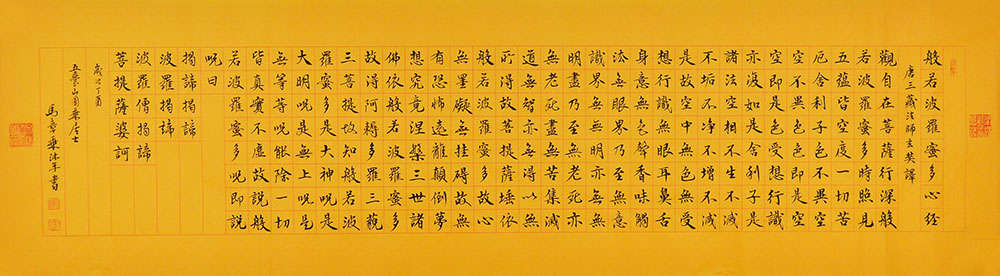 般若波羅蜜多心経
唐三藏法師玄奘譯
觀自在菩薩行深般
若波羅蜜多時照見
五蘊皆空度一切苦
厄舍利子色不異空
空不異色色即是空
空即是色受想行識
亦復如是舍利子是
諸法空相不生不滅
不垢不淨不增不減
是故空中無色無受
想行識無眼耳鼻舌
身意無色聲香味觸
法無眼界乃至無意
識界無無明亦無無
明盡乃至無老死亦
無老死盡無苦集滅
道無智亦無得以無
所得故菩提薩埵依
般若波羅蜜多故心
無罣礙無挂碍故無
有恐怖遠離顛倒夢
想究竟涅槃三世諸
佛依般若波羅蜜多
故得阿耨多羅三藐
三菩提故知般若波
羅蜜多是大神呪是
大明呪是無上呪是
無等等呪能除一切
皆真實不虛故說般
若波羅蜜多呪即說
呪曰
揭諦揭諦
波羅揭諦
波羅僧揭諦
菩提薩婆訶
歲次丁酉
五臺山居士
馬章乘沐手書